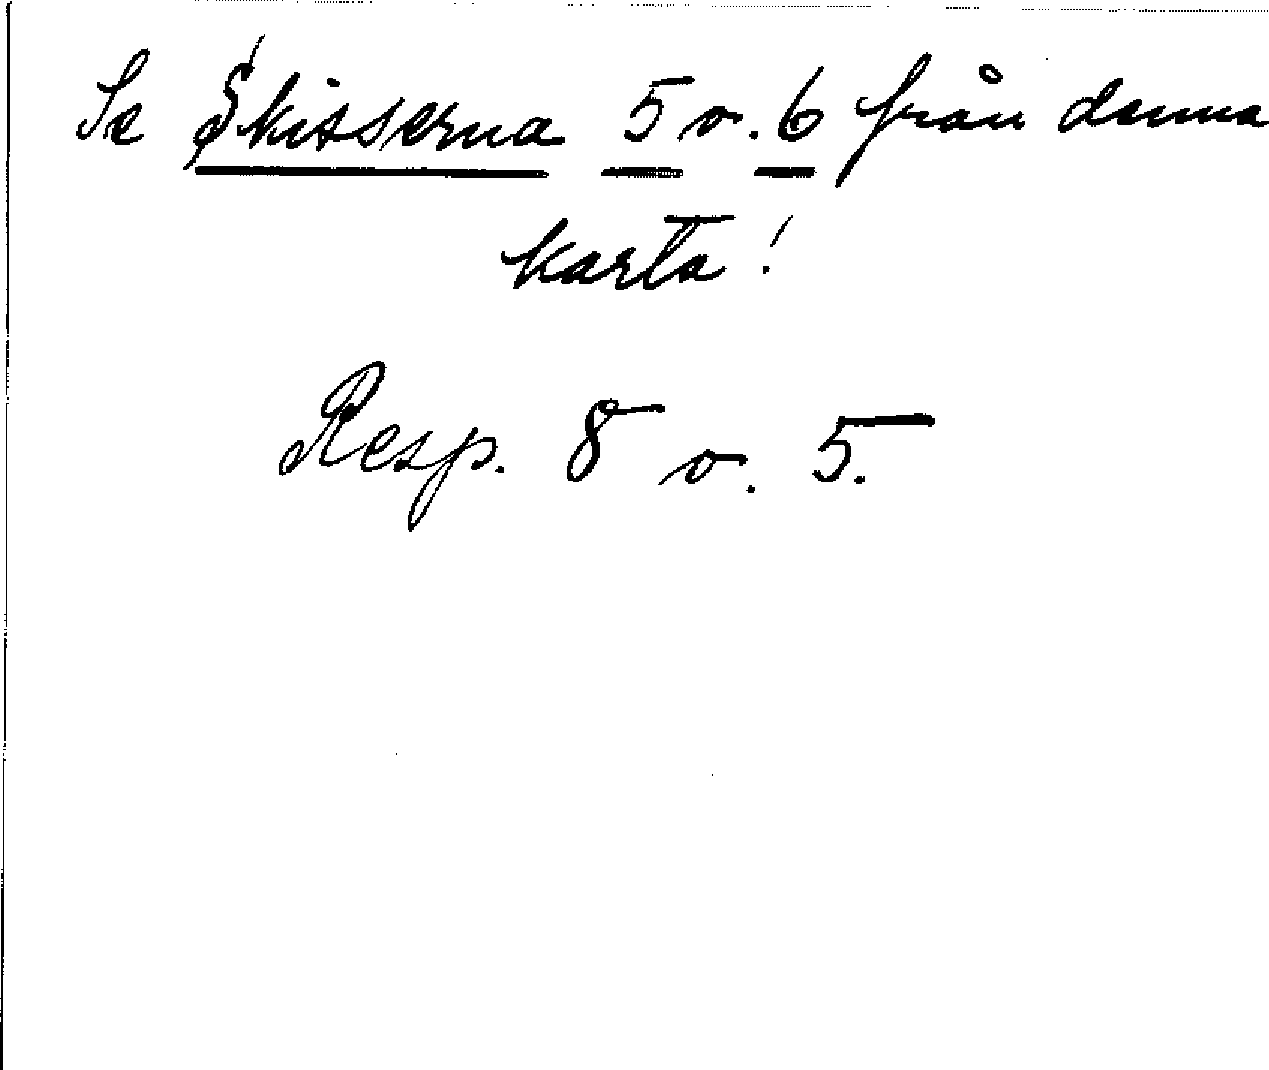 Se Skisserna 5 o. 6 från denna
karta!
Resp. 8 o. 5.